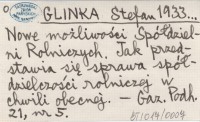 GLINKA Stefan 1933...
Nowe możliwości Spółdziel-
ni Rolniczych. Jak przed-
stawia się sprawa spół-
dzielczości rolniczej w
chwili obecnej. – Gaz. Podh.
21, nr 5.
BT1014/0004